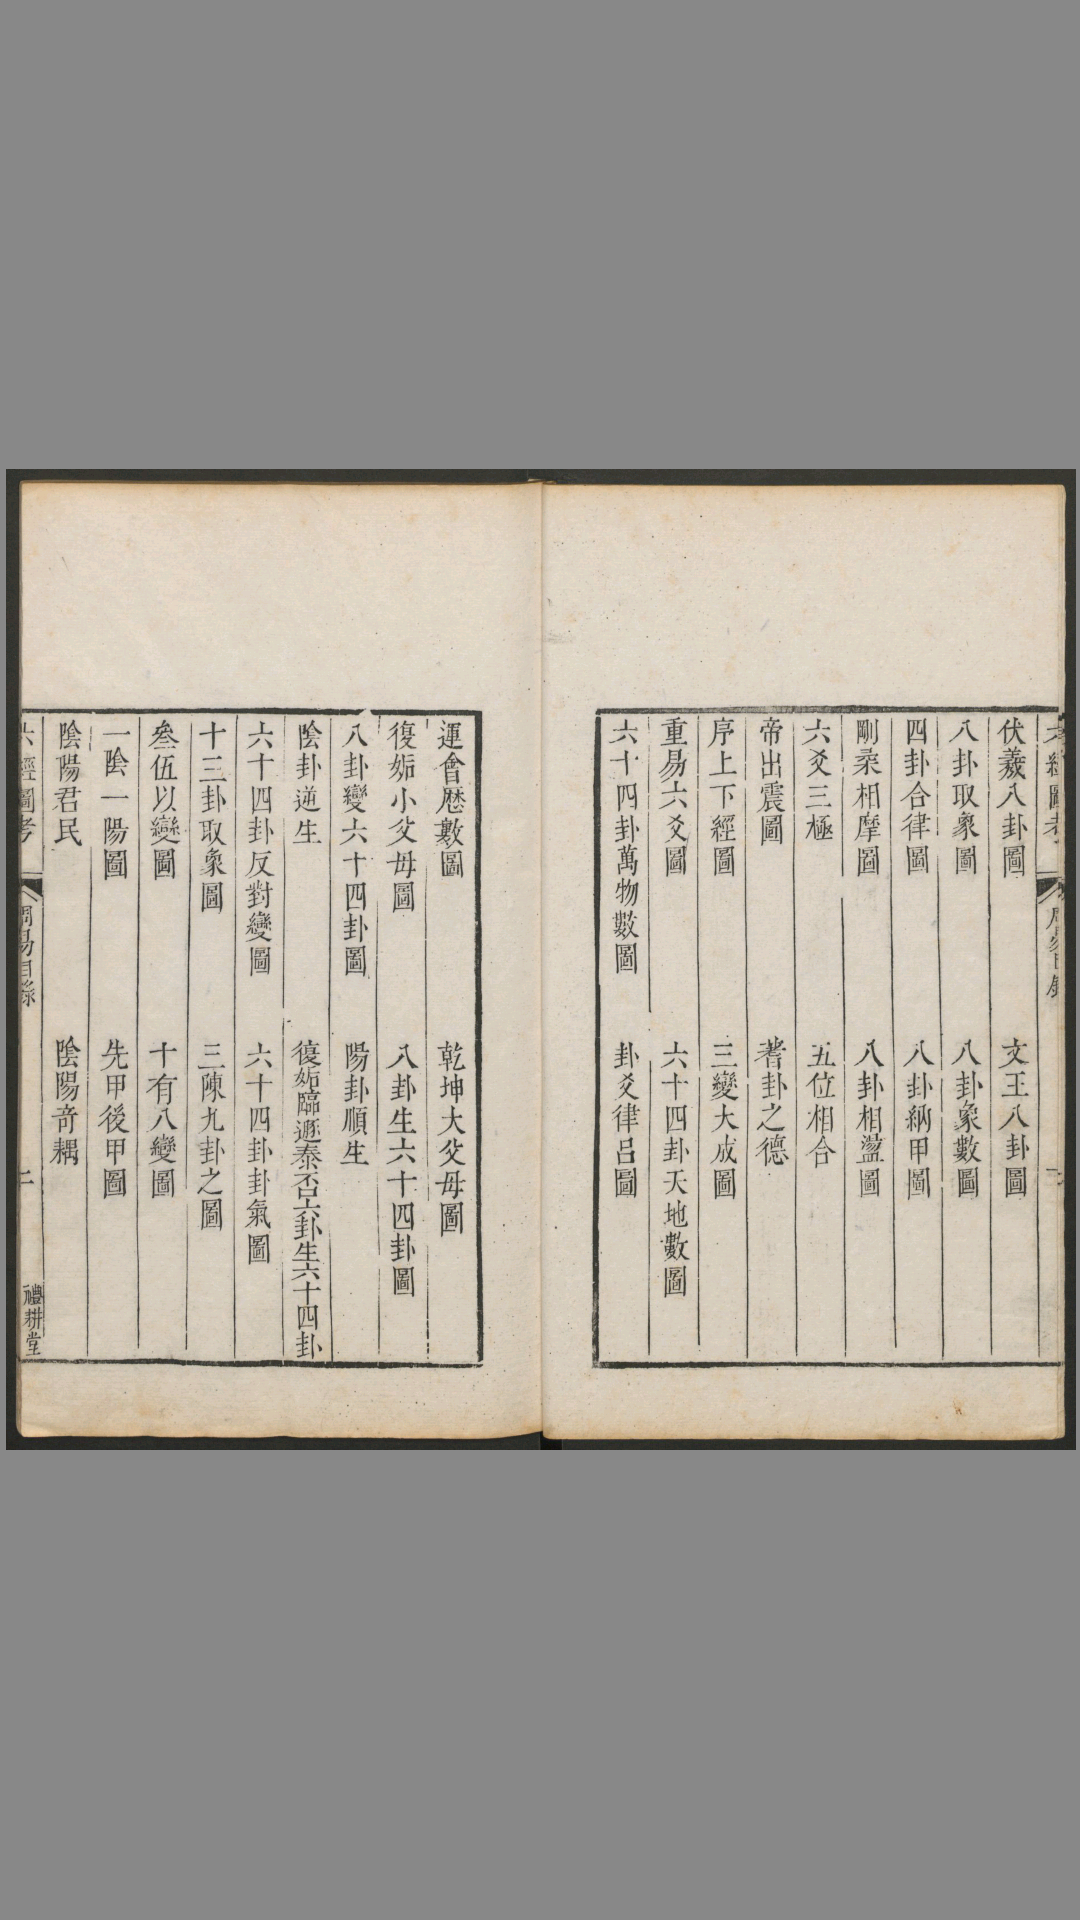 六經圖考 周易目錄
伏羲八卦圖 文王八卦圖
八卦取象圖 八卦象數圖
四卦合律圖 八卦納甲圖
剛柔相摩圖 八卦相盪圖
六爻三極 五位相合
帝出震圖 蓍卦之德
序上下經圖 三變大成圖
重易六爻圖 六十四卦天地數圖
六十四卦萬物數圖 卦爻律呂圖
運會曆數圖 乾坤大父母圖
復姤小父母圖 八卦生六十四卦圖
八卦變六十四卦圖 陽卦順生
陰卦逆生 復姤臨遯泰否六卦生六十四卦
六十四卦反對變圖 六十四卦卦氣圖
十三卦取象圖 三陳九卦之圖
叅伍以變圖 十有八變圖
一陰一陽圖 先甲後甲圖
陰陽君民 陰陽奇耦
六經圖考 周易目錄 二 禮耕堂